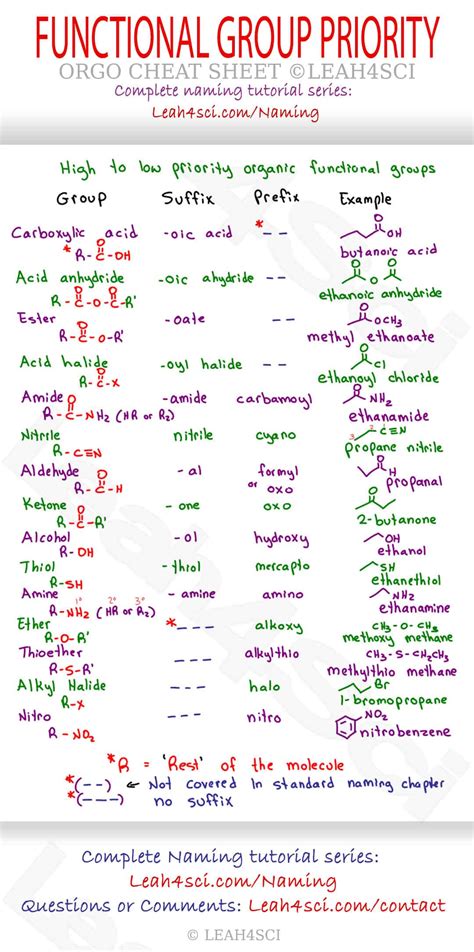 FUNCTIONAL GROUP PRIORITY
ORGO CHEAT SHEET ©LEAH4SCI
Complete naming tutorial series:
Leah4sci.com/Naming
High to low priority organic functional groups
Group Suffix Prefix Example
Carboxylic acid -oic acid *-- OH
*R-C-OH O butanoic acid
Acid anhydride -oic ahydride --- O O O
R-C-O-C-R O O ethanoic anhydride
Ester -oate -- O OCH3
R-C-O-R' O methyl ethanoate
Acid halide -oyl halide --- O Cl
R-C-X O ethanoyl chloride
Amide -amide carbamoyl O NH2
R-C-NH2 (HR or R2) O ethanamide
Nitrile nitrile cyano 3 2 C≡N
R-C≡N propane nitrile
Aldehyde -al formyl O H
R-C-H O or oxo propanal
Ketone -one oxo O
R-C-R' O 2-butanone
Alcohol -ol hydroxy OH
R-OH ethanol
Thiol -thiol mercapto SH
R-SH ethanethiol
Amine 1° 2° 3° -amine amino NH2
R-NH2 (HR or R2) ethanamine
Ether *--- alkoxy CH3-O-CH3
R-O-R' methoxy methane
Thioether --- alkylthio CH3-S-CH2CH3
R-S-R' methylthio methane
Alkyl Halide --- halo Br
R-X 1-bromopropane
Nitro --- nitro NO2
R-NO2 nitrobenzene
*R = 'Rest' of the molecule
*(--) ← Not covered In standard naming chapter
*(---) no suffix
Complete Naming tutorial series:
Leah4sci.com/Naming
Questions or Comments: Leah4sci.com/contact
© LEAH4SCI
Leah4Sci